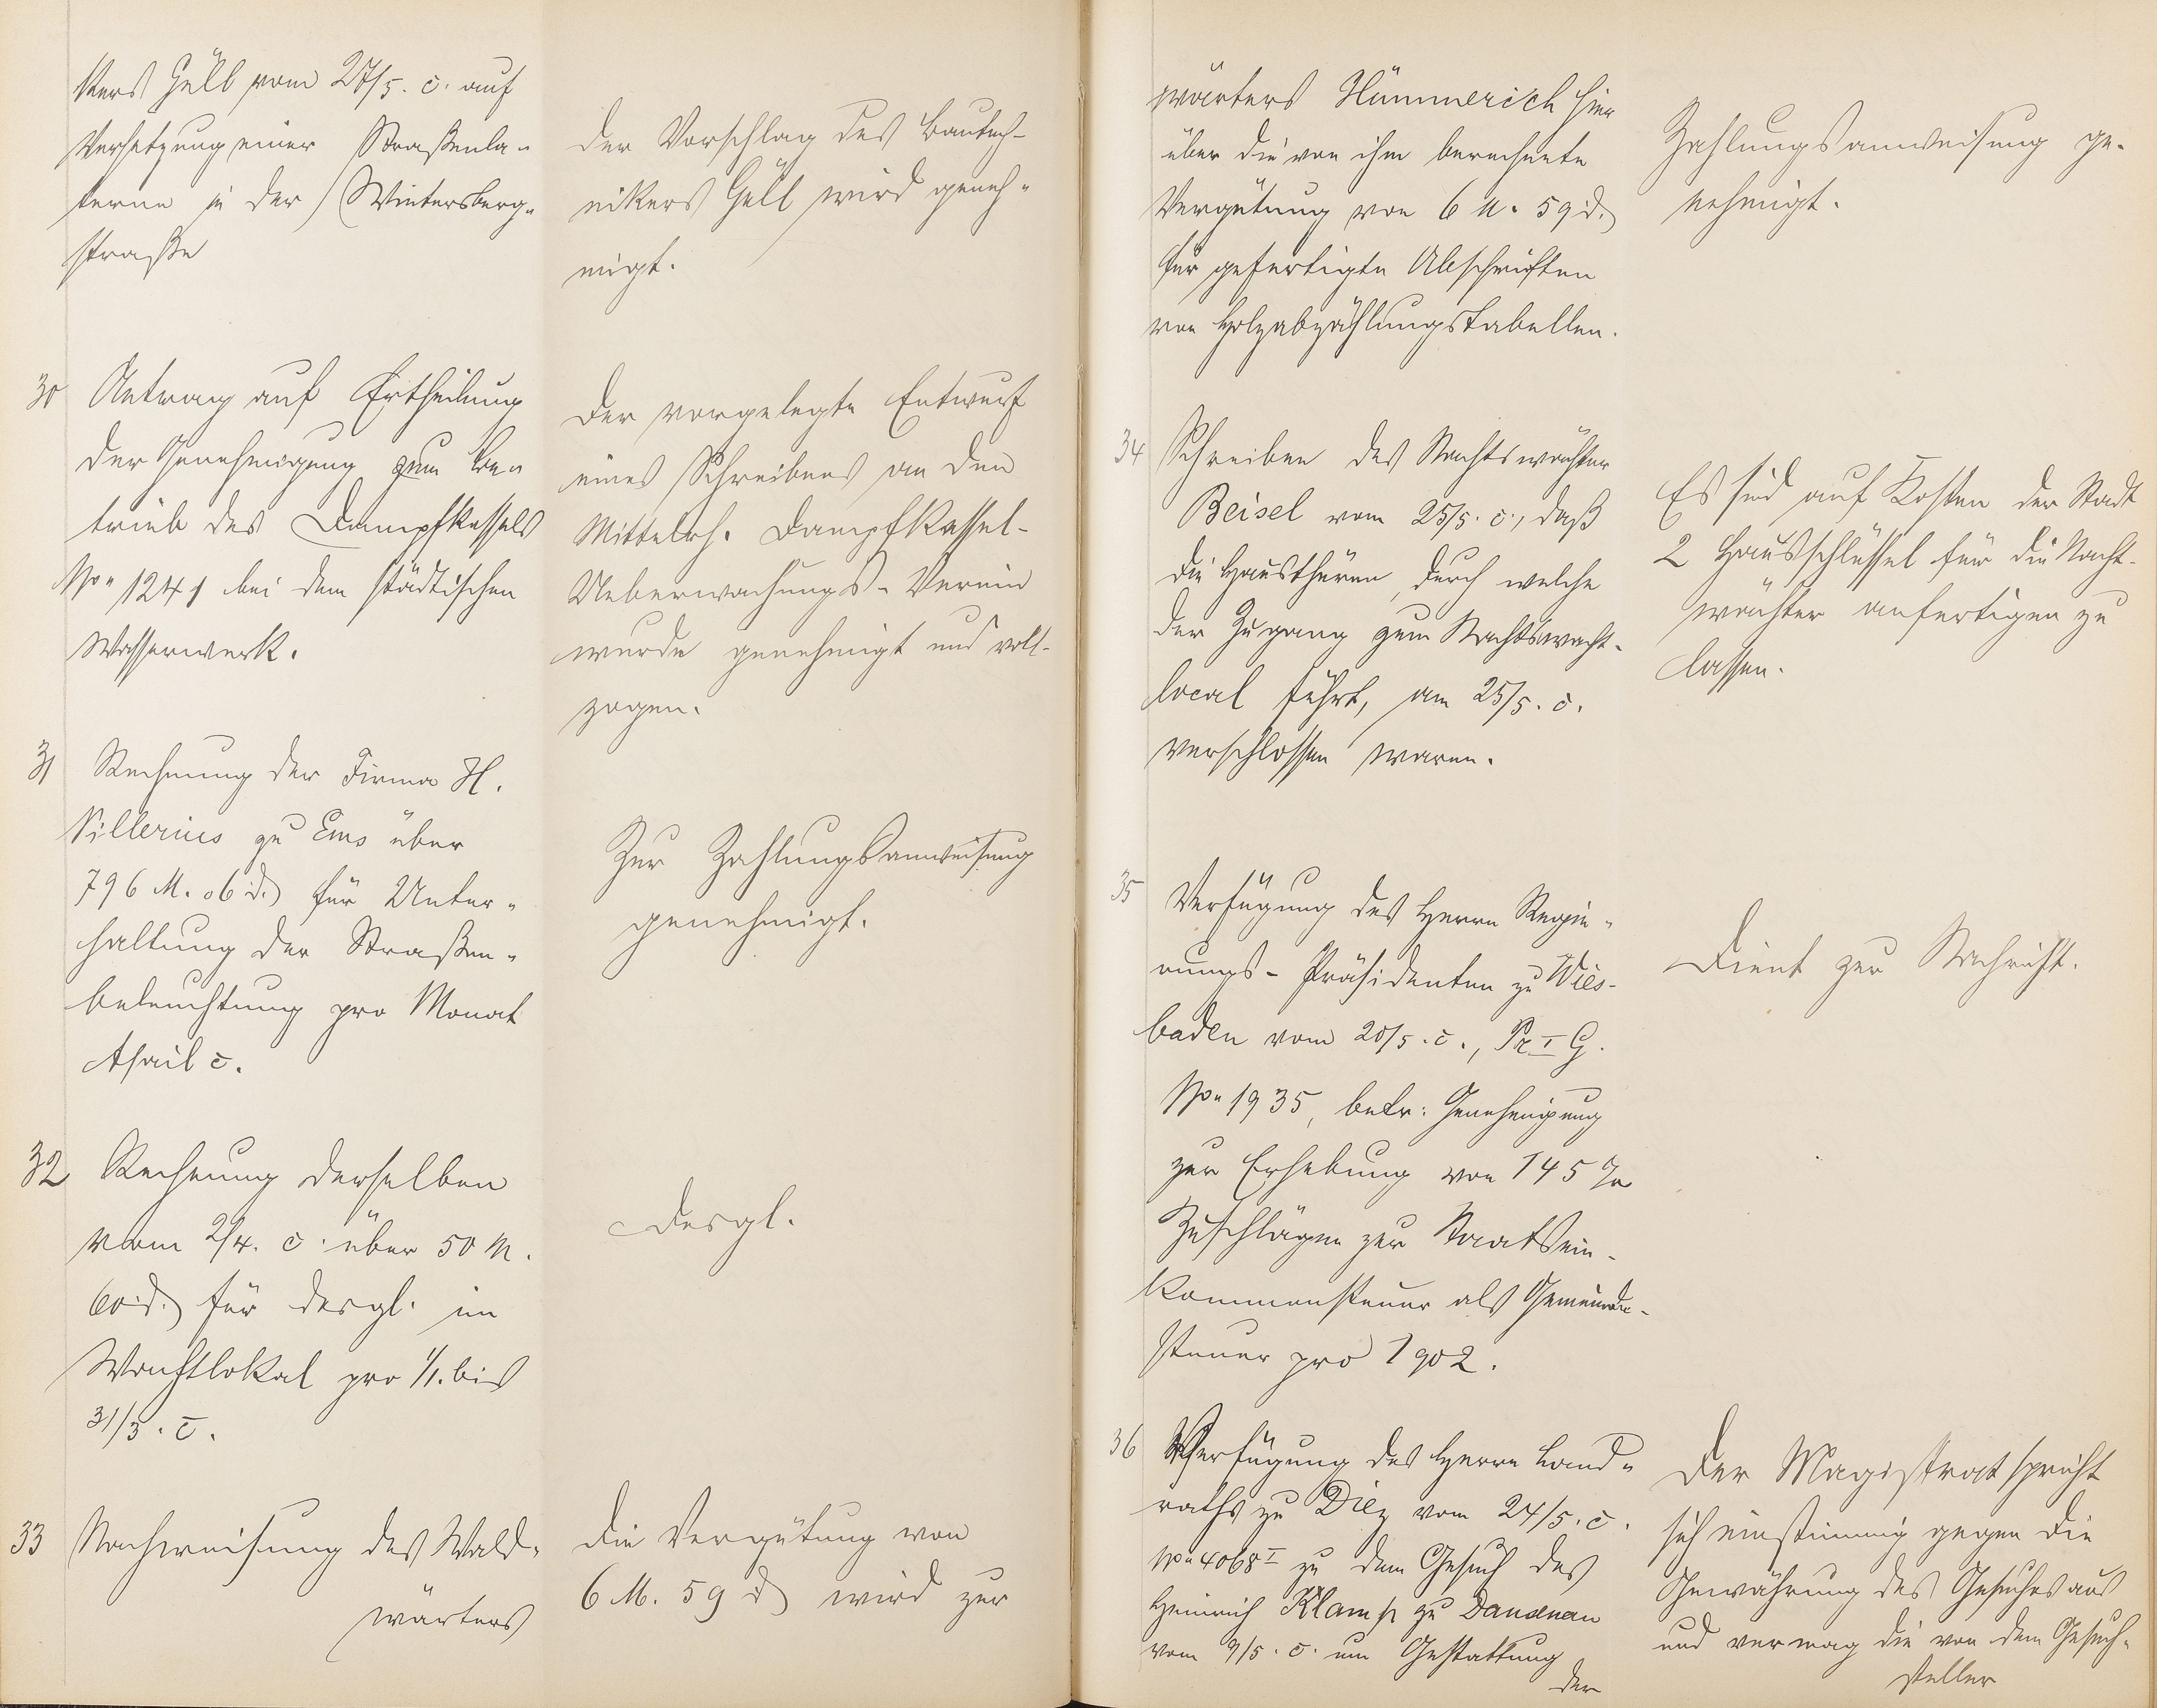 kers Güll vom 27/5. c. auf
Versetzung einer Straßenla-
terne in der Wintersberg-
straße
der Vorschlag des Bautech-
nikers Güll wird geneh-
migt.
30 Antrag auf Ertheilung
der Genehmigung zum Be-
trieb des Dampfkessels
No 1241 bei dem städtischen
Wasserwerk.
Der vorgelegte Entwurf
eines Schreibens an den
Mittelrh. Dampfkessel-
Ueberwachungs-Verein
wurde genehmigt und voll-
zogen.
31 Rechnung der Firma H.
Sillerius zu Ems über
796 M. 06 d. für Unter-
haltung der Straßen-
beleuchtung pro Monat
April c.
Zur Zahlungsanweisung
genehmigt.
32 Rechnung derselben
vom 2/4. c. über 50 M.
60 d. für desgl. im
Wachtlokal pro 1/1. bis
31/3. c.
desgl.
33 Nachweisung des Wald-
wärters
Die Vergütung von
6 M. 59 d wird zur
wärters Hümmerich hier
über die von ihm berechnete
Vergütung von 6 M. 59 d.
für gefertigte Abschriften
von Holzabzählungstabellen.
Zahlungsanweisung ge-
nehmigt.
34 Schreiben des Nachtswächter
Beisel vom 25/5. c., daß
die Hausthüren, durch welche
der Zugang zum Nachtswacht-
local führt, am 25/5. c.
verschlossen waren.
Es sind auf Kosten der Stadt
2 Hausschlüssel für die Nacht-
wächter anfertigen zu
lassen.
35 Verfügung des Herrn Regie-
rungs-Präsidenten zu Wies-
baden vom 20/5. c., Pr I G.
No 1935, betr: Genehmigung
zur Erhebung von 145 %
Zuschlägen zur Staatsein-
kommensteuer als Gemeinde-
steuer pro 1902.
Dient zur Nachricht.
36 Verfügung des Herrn Land-
raths zu Diez vom 24/5. c.
No 4068 I zu dem Gesuch des
Heinrich Klamp zu Dausenau
vom 9/5. c. um Gestattung
der
Der Magistrat spricht
sich einstimmig gegen die
Gewährung des Gesuches aus
und vermag die von dem Gesuch-
steller